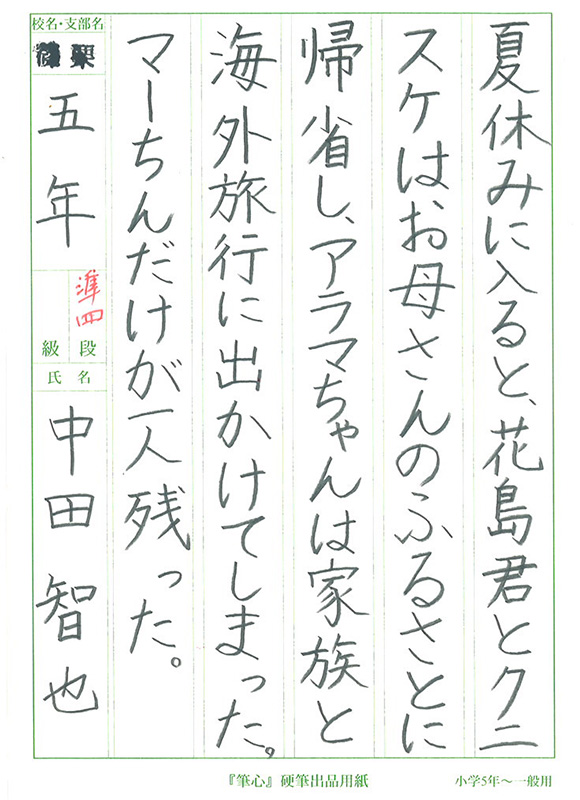 夏休みに入ると、花島君とクニ
スケはお母さんのふるさとに
帰省し、アラマちゃんは家族と
海外旅行に出かけてしまった。
マーちんだけが一人残った。
校名・支部名
五年
準四
段
級
氏名
中田智也
『筆心』硬筆出品用紙
小学5年～一般用